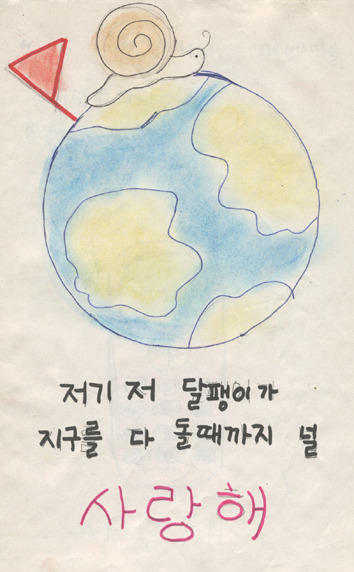 저기 저 달팽이가
지구를 다 돌때까지 널
사랑해